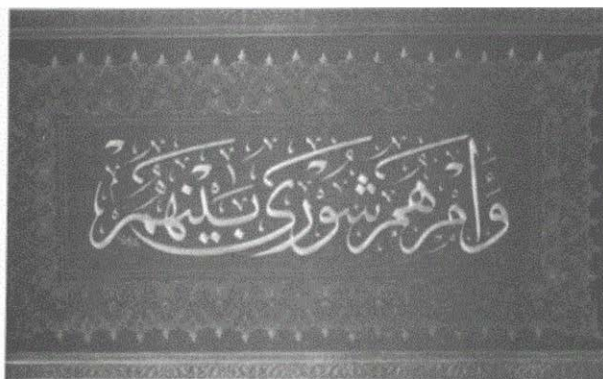 وَأَمْرُهُمْ شُورَىٰ بَيْنَهُمْ